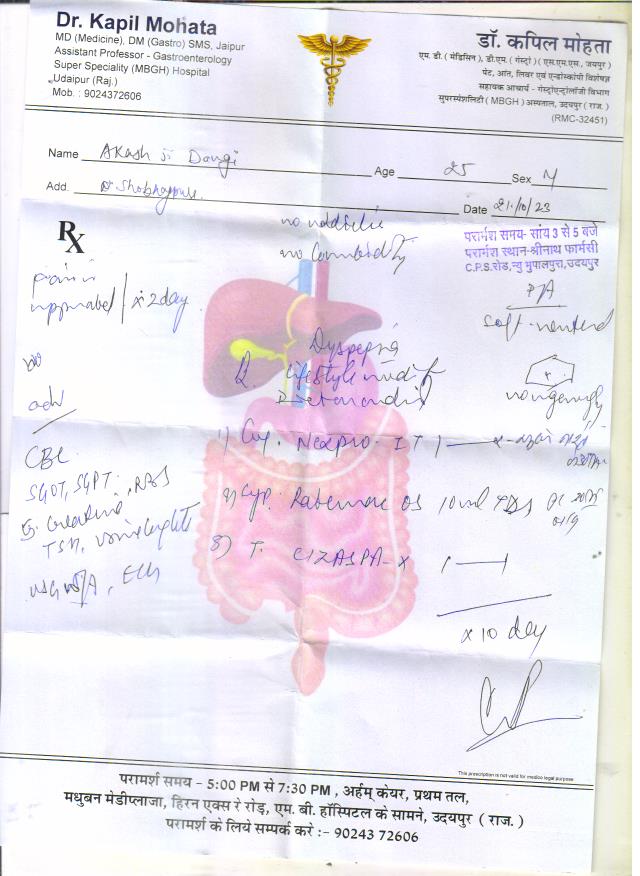 Dr. Kapil Mohata
MD (Medicine), DM (Gastro) SMS, Jaipur
Assistant Professor - Gastroenterology
Super Speciality (MBGH) Hospital
Udaipur (Raj.)
Mob. : 9024372606
डॉ. कपिल मोहता
एम. डी. ( मेडिसिन ), डी.एम. ( गेस्ट्रो ) ( एस.एम.एस., जयपुर )
पेट, आंत, लिवर एवं एन्डोस्कोपी विशेषज्ञ
सहायक आचार्य - गेस्ट्रोएन्ट्रोलॉजी विभाग
सुपरस्पेशलिटी ( MBGH ) अस्पताल, उदयपुर ( राज. )
(RMC-32451)
Name Akash Ji Dangi Age 25 Sex M
Add. Date 21/10/23
Rx
परामर्श समय- सांय 3 से 5 बजे
परामर्श स्थान-श्रीनाथ फार्मसी
C.P.S.रोड, न्यु भुपालपुरा, उदयपुर
no
no Comorbidity
pain in
x 2 day
P/A
soft
Dyspepsia
lifestyle
adv
CBC
SGOT, SGPT, RBS
S. Creatinine
TSH,
USG W/A, ECG
1) Cap. Nexpro IT 1
2) Syp. 10 ml TDS
3) T. CIZASPA-X 1
x 10 day
This prescription is not valid for medico legal purpose
परामर्श समय – 5:00 PM से 7:30 PM , अर्हम् केयर, प्रथम तल,
मधुबन मेडीप्लाजा, हिरन एक्स रे रोड़, एम. बी. हॉस्पिटल के सामने, उदयपुर ( राज. )
परामर्श के लिये सम्पर्क करे :- 90243 72606